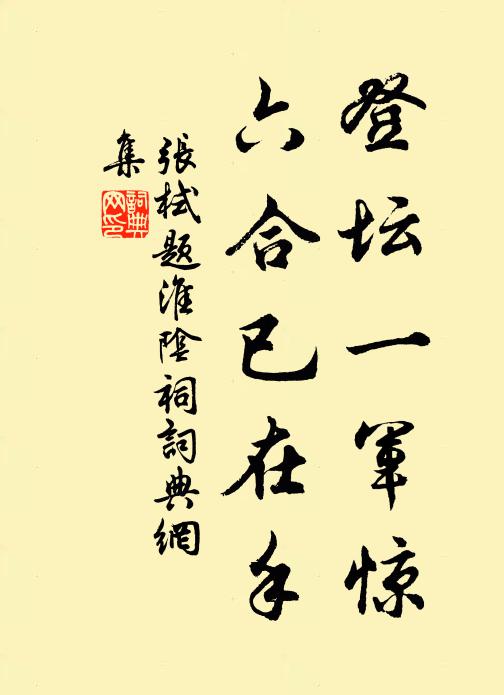 登坛一军惊
六合已在手
張栻题淮陰祠詞典網
集
詞典
网印